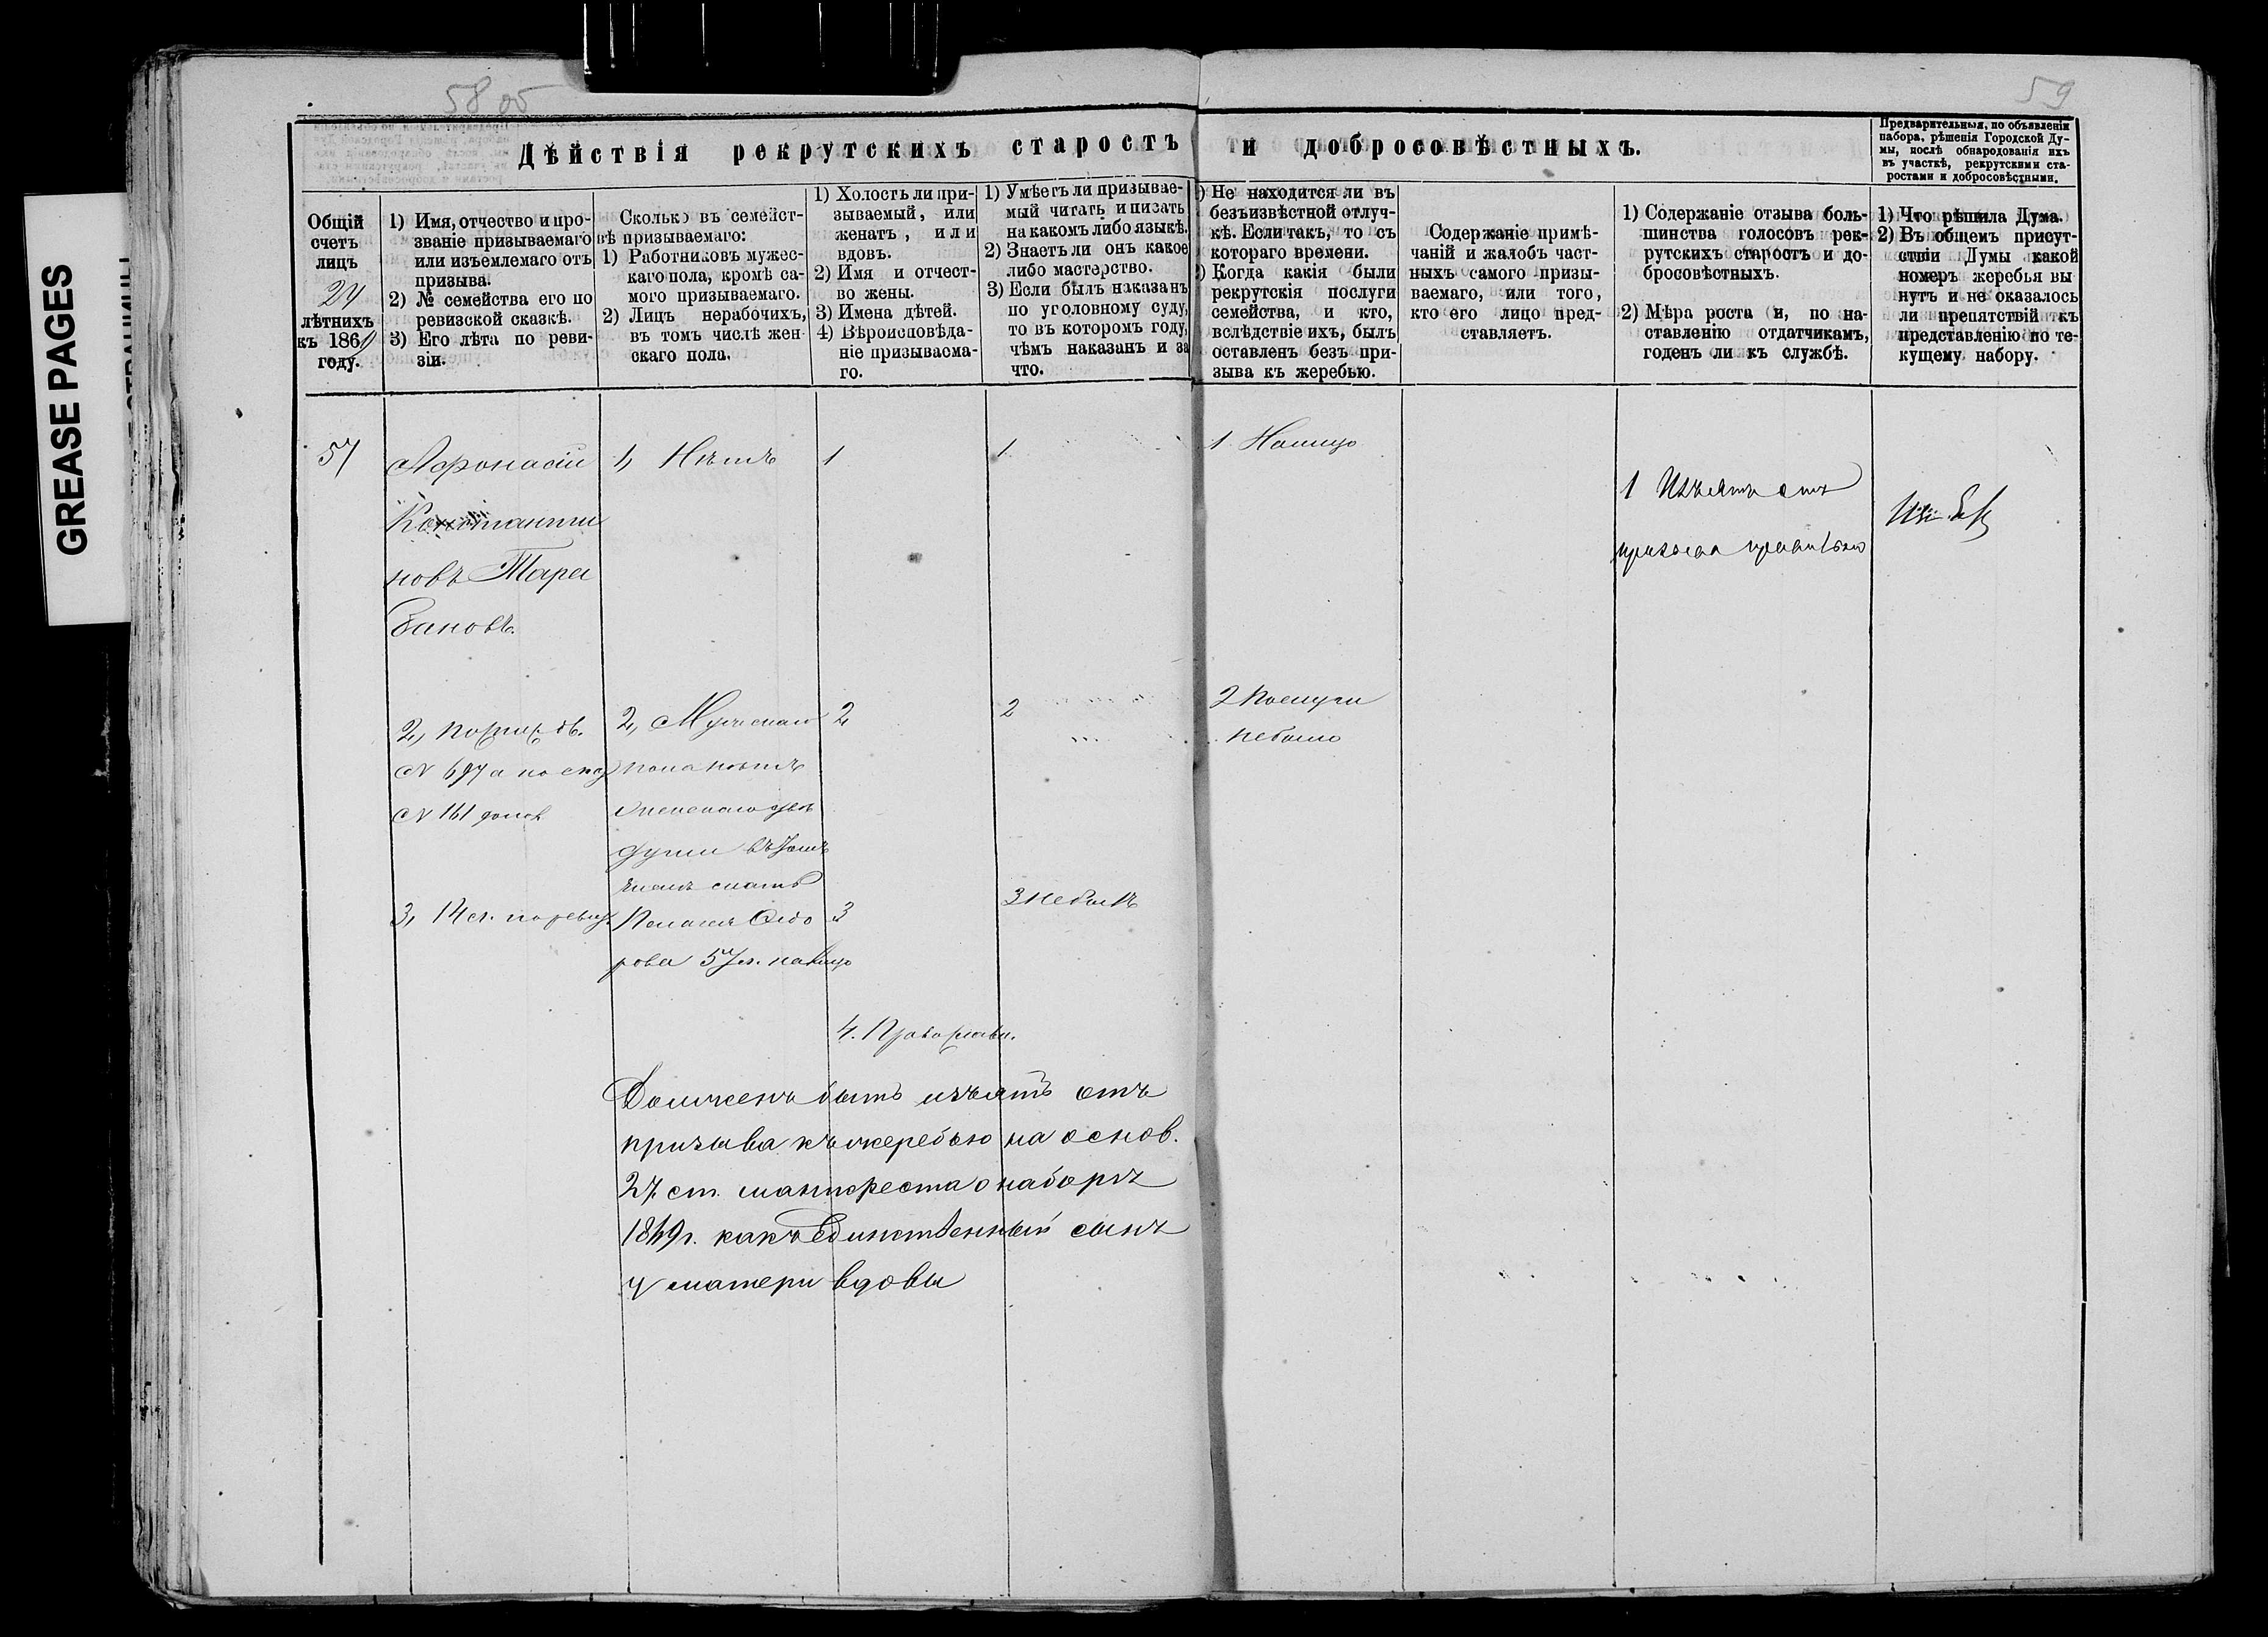 GREASE PAGES
58 об
59
Дѣйствія рекрутскихъ старостъ и добросовѣстныхъ.
Предварительныя, по объявленіи
набора, рѣшенія Городской Ду-
мы, послѣ обнародованія ихъ
въ участкѣ, рекрутскими ста-
ростами и добросовѣстными.
Общій
счетъ
лицъ
24
лѣтнихъ
къ 1869
году.
1) Имя, отчество и про-
званіе призываемаго
или изъемлемаго отъ
призыва.
2) № семейства его по
ревизской сказкѣ.
3) Его лѣта по реви-
зіи.
Сколько въ семейст-
вѣ призываемаго:
1) Работниковъ мужес-
каго пола, кромѣ са-
мого призываемаго.
2) Лицъ нерабочихъ,
въ томъ числѣ жен
скаго пола.
1) Холостъ ли при-
зываемый, или
женатъ, или
вдовъ.
2) Имя и отчест-
во жены.
3) Имена дѣтей.
4) Вѣроисповѣда-
ніе призываема-
го.
1) Умѣетъ ли призывае-
мый читать и писать
на какомъ либо языкѣ.
2) Знаетъ ли онъ какое
либо мастерство.
3) Если былъ наказанъ
по уголовному суду,
то въ которомъ году,
чѣмъ наказанъ и за
что.
) Не находится ли въ
безъизвѣстной отлуч-
кѣ. Если такъ, то съ
котораго времени.
) Когда какія были
рекрутскія послуги
семейства, и кто,
вслѣдствіе ихъ, былъ
оставленъ безъ при-
зыва къ жеребью.
Содержаніе примѣ-
чаній и жалобъ част-
ныхъ самого призы-
ваемаго, или того,
кто его лицо пред-
ставляетъ.
1) Содержаніе отзыва боль-
шинства голосовъ рек-
рутскихъ старостъ и до-
бросовѣстныхъ.
2) Мѣра роста и, по на-
ставленію отдатчикамъ,
годенъ ли къ службѣ.
1) Что рѣшила Дума.
2) Въ общемъ присут-
ствіи Думы какой
номеръ жеребья вы
нутъ и не оказалось
ли препятствій къ
представленію по те-
кущему набору.
57
Афонасій
Константи
новъ Тара
бановъ.
2,
№ 697 а по
№ 161
3, 14 л. по ревиз
1, Нѣтъ
2, Мужскаго
пола нѣтъ
Женскаго
души въ томъ
числѣ мать
Пелагея Сидо
рова 57 л. налицо
1
2
3
4. Православн.
1
2
3 Небылъ
1 Налицо
2 Послуги
небыло
1 Изъять отъ
призыва правильно
Долженъ быть изъятъ отъ
призыва къ жеребью на основ.
27 ст. манифеста о наборѣ
1869 г. какъ единственный сынъ
у матери вдовы